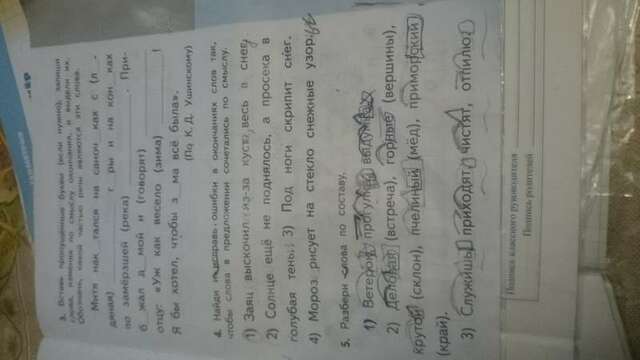 3. Вставь пропущенные буквы (если нужно), запиши
слова, изменяя по смыслу окончания, и выдели их.
Обозначь, какой частью речи являются эти слова.
Митя нак_тался на саноч_ках с (л_-
дяная) ____ г_ры и на кон_ках
по замёрзшей (река) ____. При-
б_жал д_мой и (говорят) ____
отцу: «Уж как весело (зима) ____!
Я бы хотел, чтобы з_ма всё была».
(По К. Д. Ушинскому)
4. Найди и исправь ошибки в окончаниях слов так,
чтобы слова в предложении сочетались по смыслу.
1) Заяц выскочил из-за куста, весь в снег
2) Солнце ещё не поднялось, а просека в
голубая тень. 3) Под ноги скрипит снег.
4) Мороз рисует на стекло снежные узоры
5. Разбери слова по составу.
1) Ветерок, прогулка, выдумка
2) Деловая (встреча), горные (вершины),
крутой (склон), пчелиный (мёд), приморский
(край).
3) Служишь, приходят, чистят, отпилю.
Подпись классного руководителя
Подпись родителей